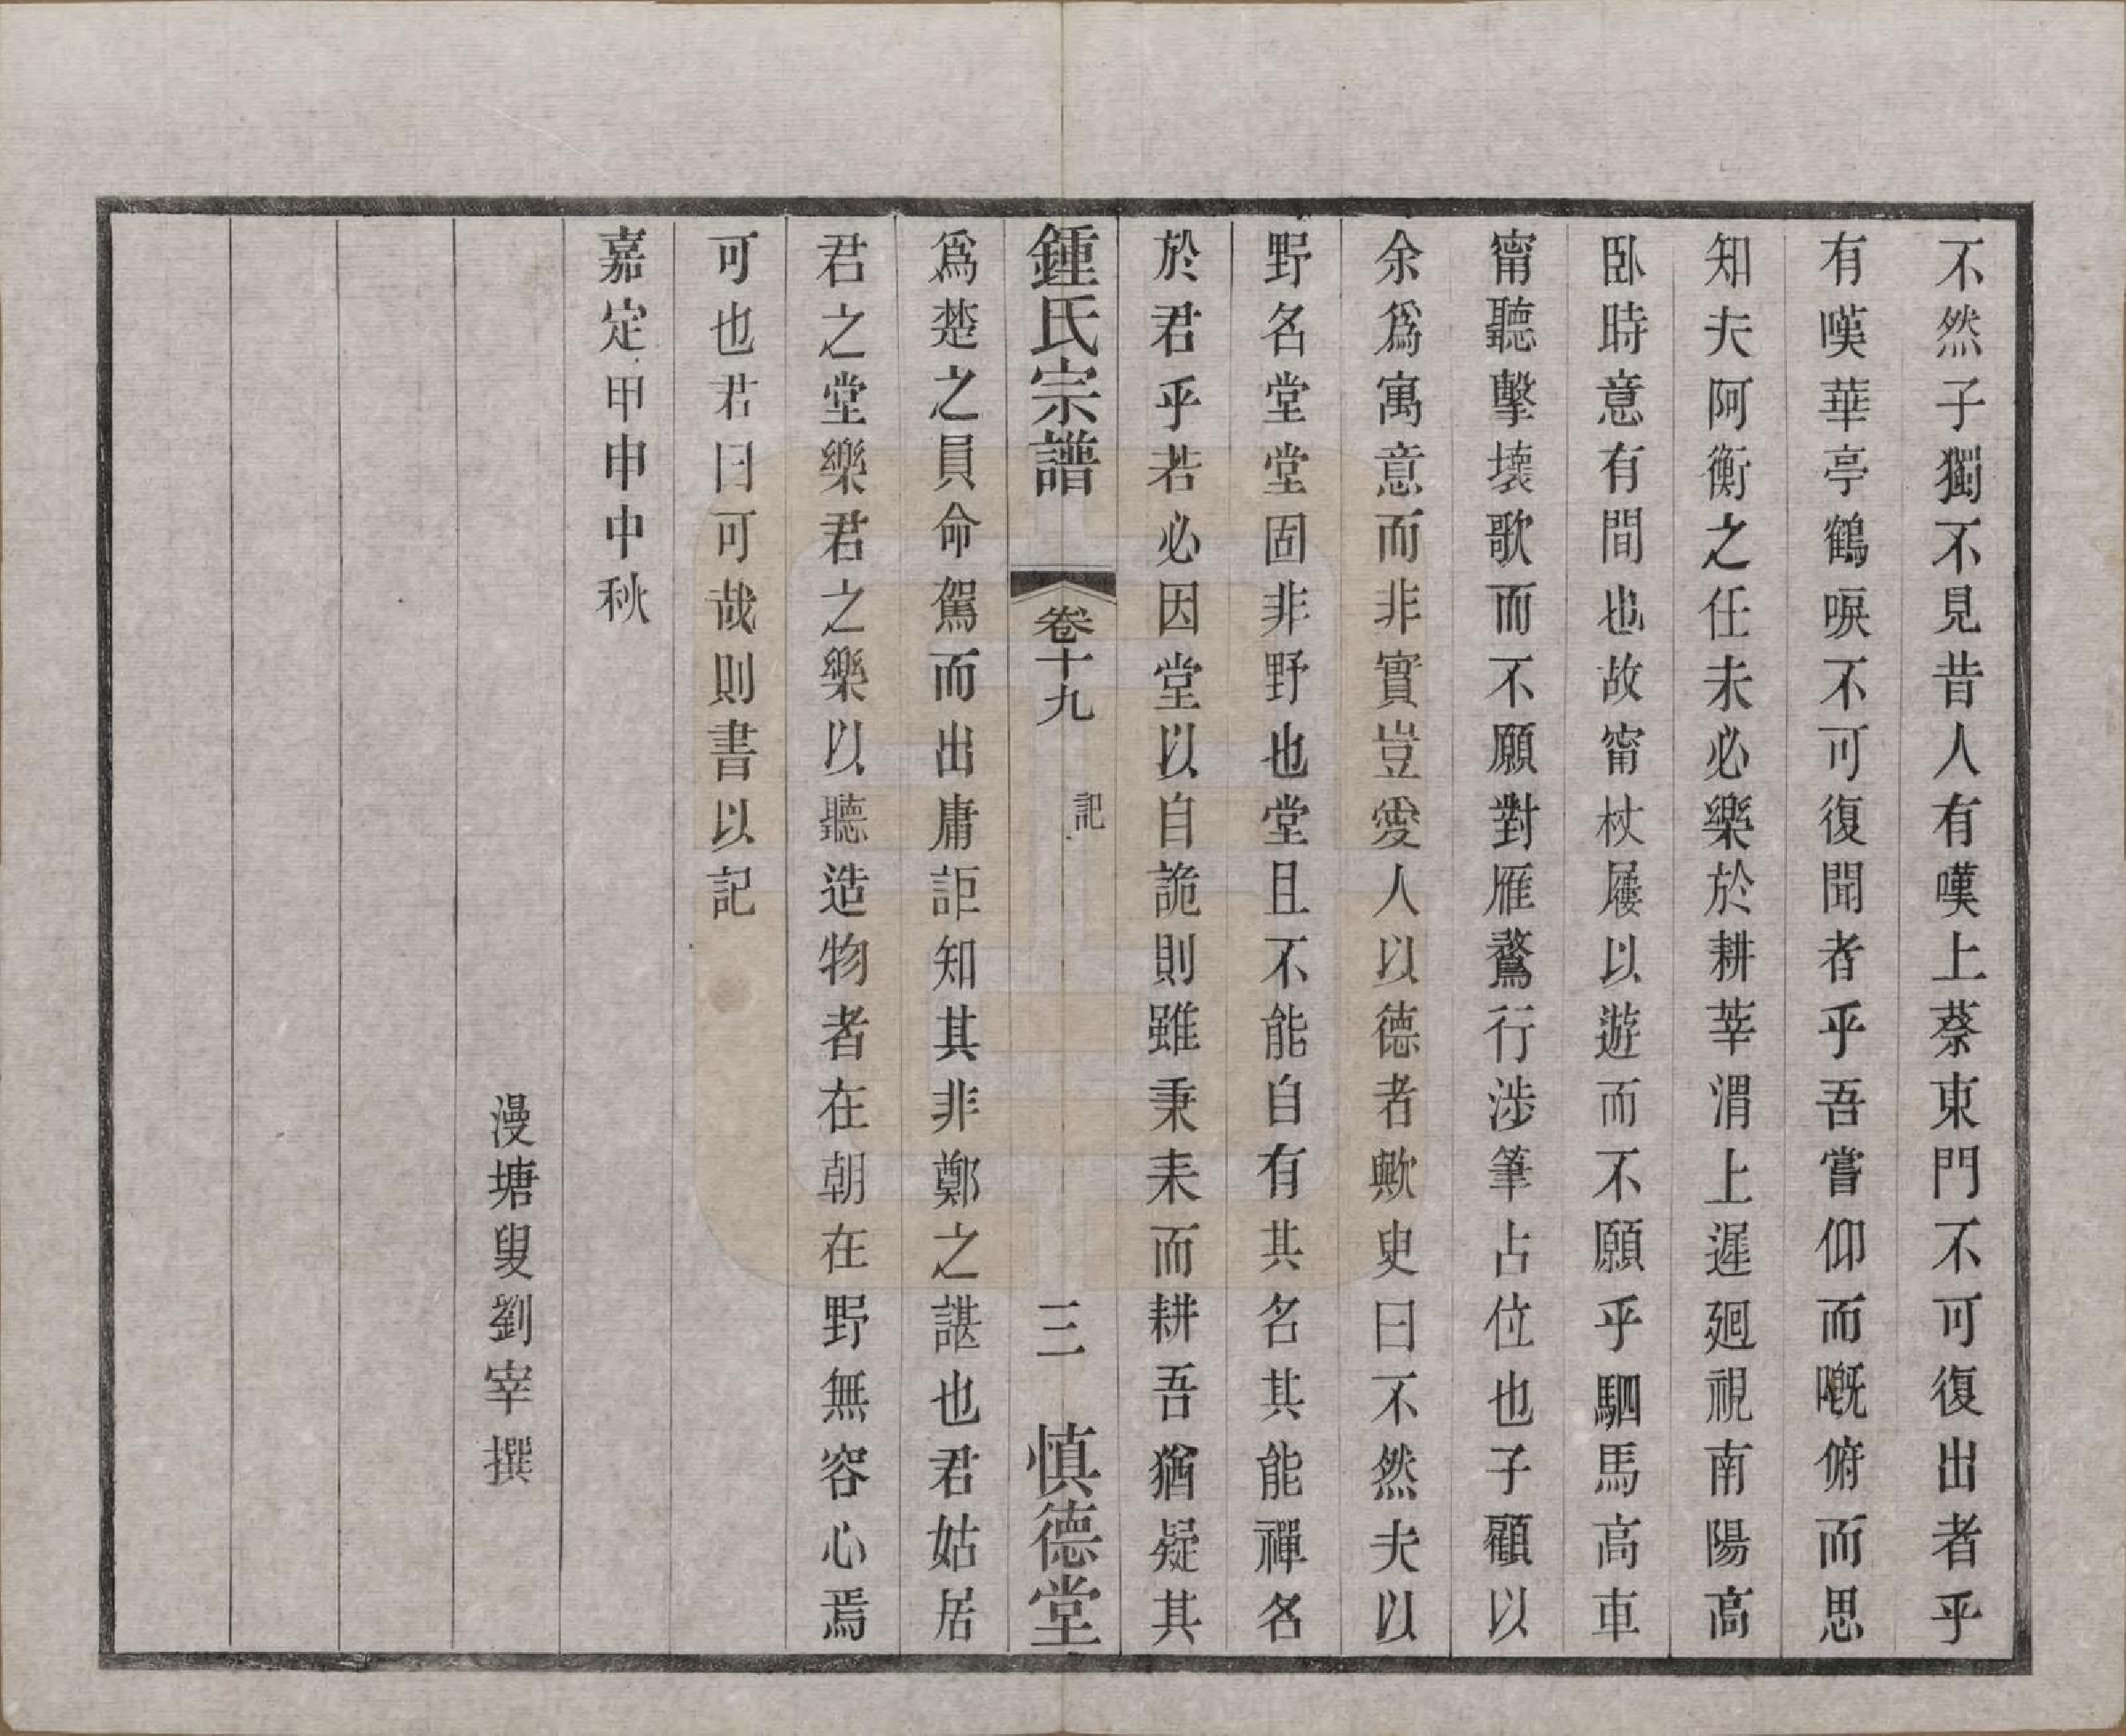 不然子獨不見昔人有嘆上蔡東門不可復出者乎
有嘆華亭鶴唳不可復聞者乎吾嘗仰而嘅俯而思
知夫阿衡之任未必樂於耕莘渭上遲廻視南陽高
臥時意有間也故甯杖屨以遊而不願乎駟馬高車
甯聽擊壤歌而不願對雁鶩行涉筆占位也子顧以
余為寓意而非實豈愛人以德者歟史曰不然夫以
野名堂堂固非野也堂且不能自有其名其能禪名
於君乎若必因堂以自詭則雖秉耒而耕吾猶疑其
鍾氏宗譜 卷十九 記 三 慎德堂
為楚之員命駕而出庸詎知其非鄭之諶也君姑居
君之堂樂君之樂以聽造物者在朝在野無容心焉
可也君曰可哉則書以記
嘉定甲申中秋
漫塘叟劉宰撰